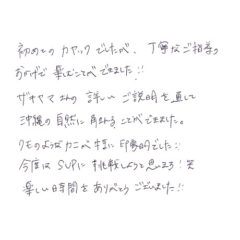 初めてのカヤックでしたが、丁寧なご指導の
おかげで楽しむことができました!!
ザキヤマさんの詳しいご説明を通して
沖縄の自然に触れることができました。
クモのようなカニが特に印象的でした!!
今度はSUPに挑戦しようと思います!笑
楽しい時間をありがとうございました!!